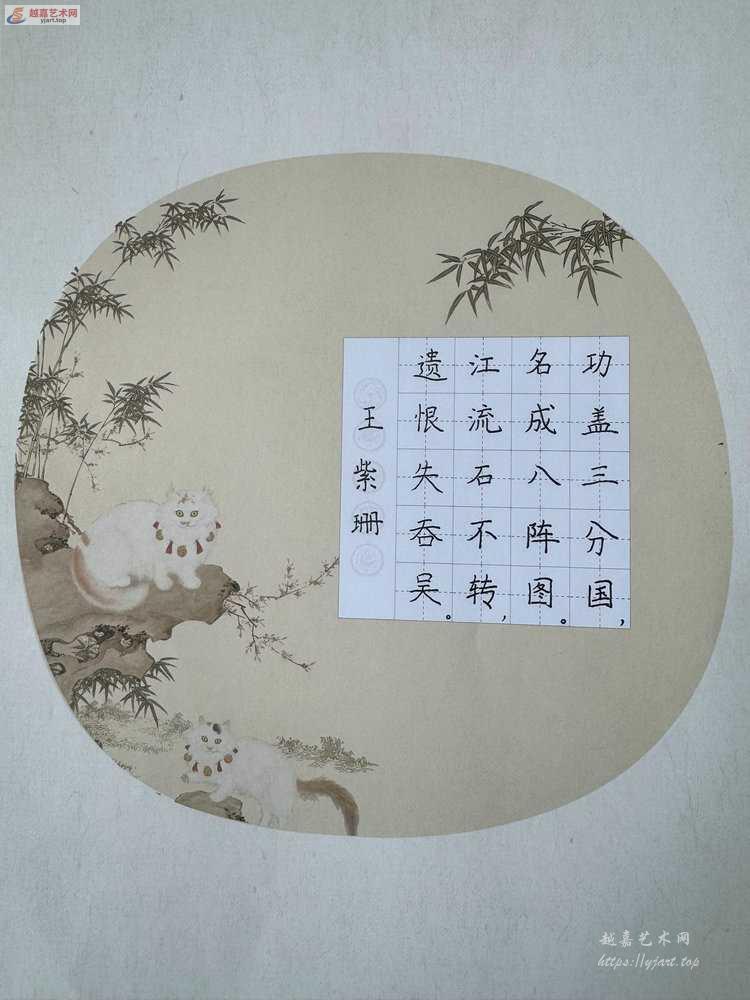 越嘉艺术网
yjart.top
功盖三分国，
名成八阵图。
江流石不转，
遗恨失吞吴。
王紫珊
越嘉艺术网
https://yjart.top